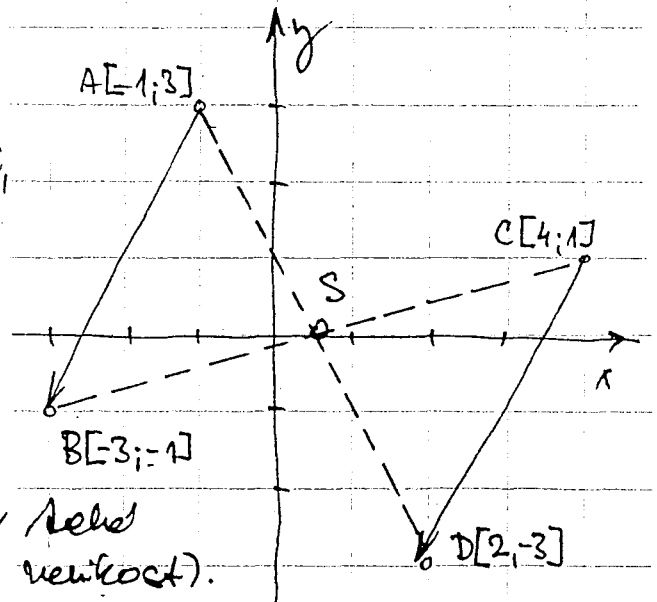 y
A[-1;3]
C[4;1]
S
x
B[-3;-1]
D[2,-3]
velikost).